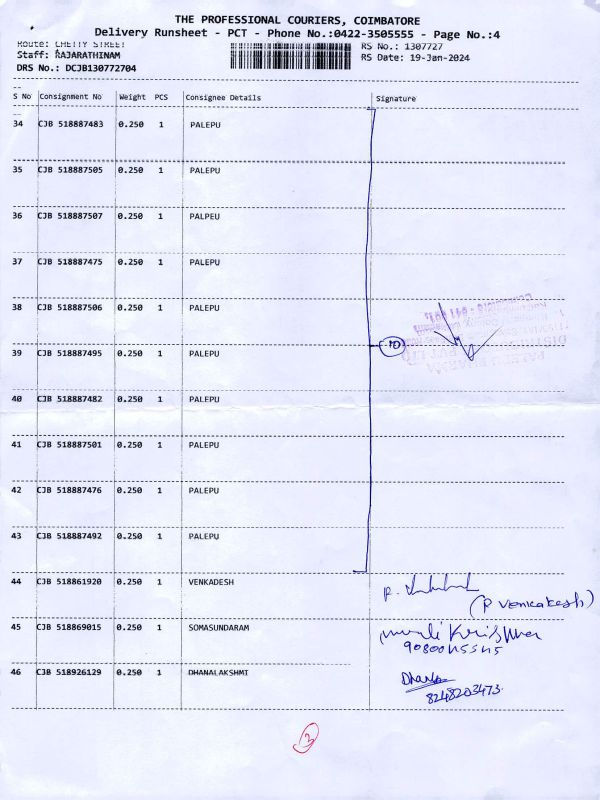 THE PROFESSIONAL COURIERS, COIMBATORE
Delivery Runsheet - PCT - Phone No.:0422-3505555 - Page No.:4
Route: CHETTY STREET
RS No.: 1307727
Staff: RAJARATHINAM
RS Date: 19-Jan-2024
DRS No.: DCJB130772704
S No Consignment No Weight PCS Consignee Details Signature
34 CJB 518887483 0.250 1 PALEPU
35 CJB 518887505 0.250 1 PALEPU
36 CJB 518887507 0.250 1 PALPEU
37 CJB 518887475 0.250 1 PALEPU
38 CJB 518887506 0.250 1 PALEPU
10
39 CJB 518887495 0.250 1 PALEPU
40 CJB 518887482 0.250 1 PALEPU
41 CJB 518887501 0.250 1 PALEPU
42 CJB 518887476 0.250 1 PALEPU
43 CJB 518887492 0.250 1 PALEPU
44 CJB 518861920 0.250 1 VENKADESH
(P Venkatesh)
45 CJB 518869015 0.250 1 SOMASUNDARAM murali Krishna
46 CJB 518926129 0.250 1 DHANALAKSHMI Dhana
8248203473
3